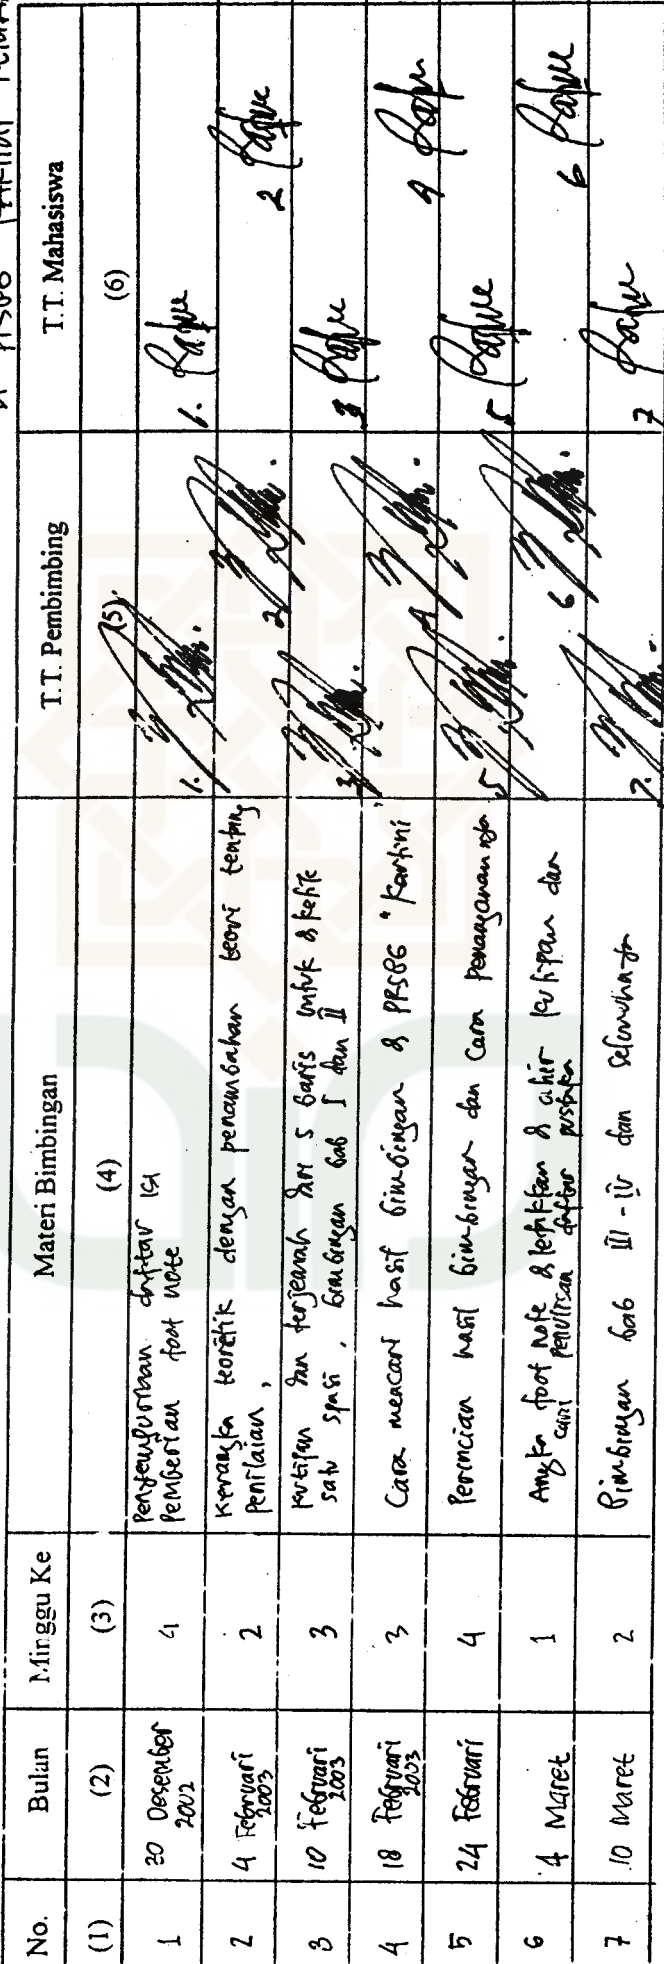 di PRSBG
No. Bulan Minggu Ke Materi Bimbingan T.T. Pembimbing T.T. Mahasiswa
(1) (2) (3) (4) (5) (6)
1 30 Desember 4 Penyempurnaan daftar isi 1. 1.
2002 Pemberian foot note
2 4 Februari 2 Kerangka teoretik dengan penambahan teori tentang 2. 2
2003 penilaian,
3 10 Februari 3 Kutipan dan terjemah dari 5 baris untuk diketik 3 3
2003 satu spasi, bimbingan bab I dan II
4 18 Februari 3 Cara mencari hasil bimbingan di PRSBG "Kartini 4 4
2003
5 24 Februari 4 Perincian hasil bimbingan dan cara penanganannya 5 5
6 4 Maret 1 Angka foot note diletakkan di ahir kutipan dan 6 6
cara penulisan daftar pustaka
7 10 Maret 2 Bimbingan bab III - IV dan seluruhnya 7. 7